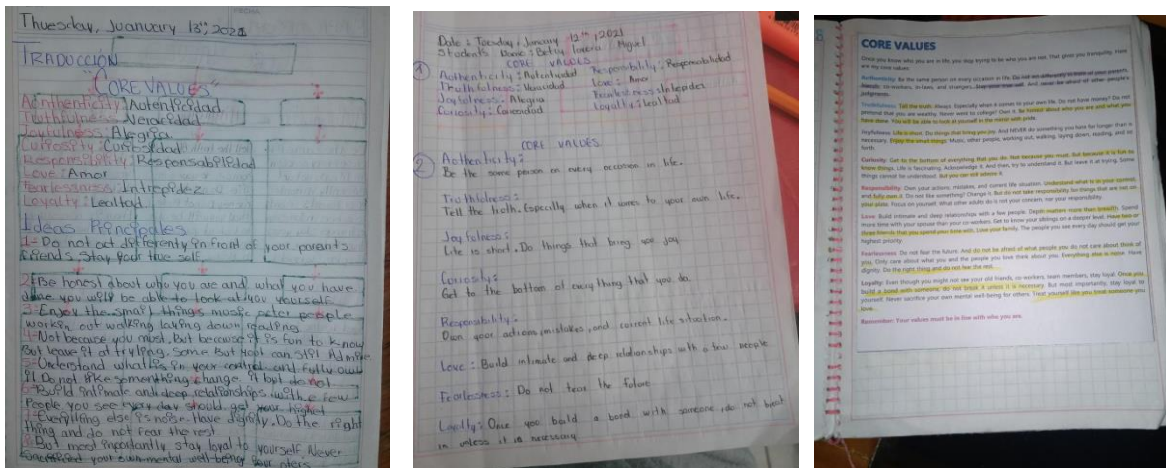 FECHA
Thuesday, Juanuary 13th, 2021
TRADUCCIÓN
CORE VALUES
Aunthenticity: Autenticidad
Truthfulness: Veracidad
Joyfulness: Alegria
Curiosity: Curiosidad
Responsibility: Responsabilidad
Love: Amor
Fearlessness: Intrepidez
Loyalty: Lealtad
Ideas Principales
1- Do not act differently in front of your parents
friends. Stay your true self.
2- Be honest about who you are and what you have
done you will be able to look at you yourself
3- Enjoy the small things music peter people
workin out walking laying down reading
4- Not because you must. But because it is fun to know
But leave it at trying. Some But you can still Admire
5- Understand what is in your control and fully own
it Do not like something change it but do not
Build intimate and deep relationships with a few
People you see every day should get your highest
Everything else is noise. Have dignity. Do the right
thing and do not fear the rest
But most importantly stay loyal to yourself. Never
your own mental well-being
Date: Tuesday, January 12th, 2021
Students Name: Betsy Miguel
CORE VALUES
1
Authenticity: Autenticidad Responsibility: Responsabilidad
Truthfulness: Veracidad Love: Amor
Joyfulness: Alegria Fearlessness: Intrepidez
Curiosity: Loyalty: Lealtad
CORE VALUES
2
Authenticity:
Be the same person on every occasion in life.
Truthfulness:
Tell the truth. Especially when it comes to your own life.
Joyfulness:
Life is short. Do things that bring you joy.
Curiosity:
Get to the bottom of everything that you do.
Responsability:
Own your actions, mistakes, and current life situation.
Love: Build intimate and deep relationships with a few people.
Fearlessness: Do not fear the future
Loyalty: Once you build a bond with someone, do not break
in unless it is necessary
CORE VALUES
Once you know who you are in life, you stop trying to be who you are not. That gives you tranquility. Here
are my core values:
Authenticity: Be the same person on every occasion in life. Do not act differently in front of your parents,
friends, co-workers, in-laws, and strangers. Stay your true self. And never be afraid of other people's
judgments.
Truthfulness: Tell the truth. Always. Especially when it comes to your own life. Do not have money? Do not
pretend that you are wealthy. Never went to college? Own it. Be honest about who you are and what you
have done. You will be able to look at yourself in the mirror with pride.
Joyfulness: Life is short. Do things that bring you joy. And NEVER do something you hate for longer than is
necessary. Enjoy the small things: Music, other people, working out, walking, laying down, reading, and so
forth.
Curiosity: Get to the bottom of everything that you do. Not because you must. But because it is fun to
know things. Life is fascinating. Acknowledge it. And then, try to understand it. But leave it at trying. Some
things cannot be understood. But you can still admire it.
Responsibility: Own your actions, mistakes, and current life situation. Understand what is in your control,
and fully own it. Do not like something? Change it. But do not take responsibility for things that are not on
your plate. Focus on yourself. What other adults do is not your concern nor your responsibility.
Love: Build intimate and deep relationships with a few people. Depth matters more than breadth. Spend
more time with your spouse than your co-workers. Get to know your siblings on a deeper level. Have two or
three friends that you spend your time with. Love your family. The people you see every day should get your
highest priority.
Fearlessness: Do not fear the future. And do not be afraid of what people you do not care about think of
you. Only care about what you and the people you love think about you. Everything else is noise. Have
dignity. Do the right thing and do not fear the rest.
Loyalty: Even though you might not see your old friends, co-workers, team members, stay loyal. Once you
build a bond with someone, do not break it unless it is necessary. But most importantly, stay loyal to
yourself. Never sacrifice your own mental well-being for others. Treat yourself like you treat someone you
love.
Remember: Your values must be in line with who you are.